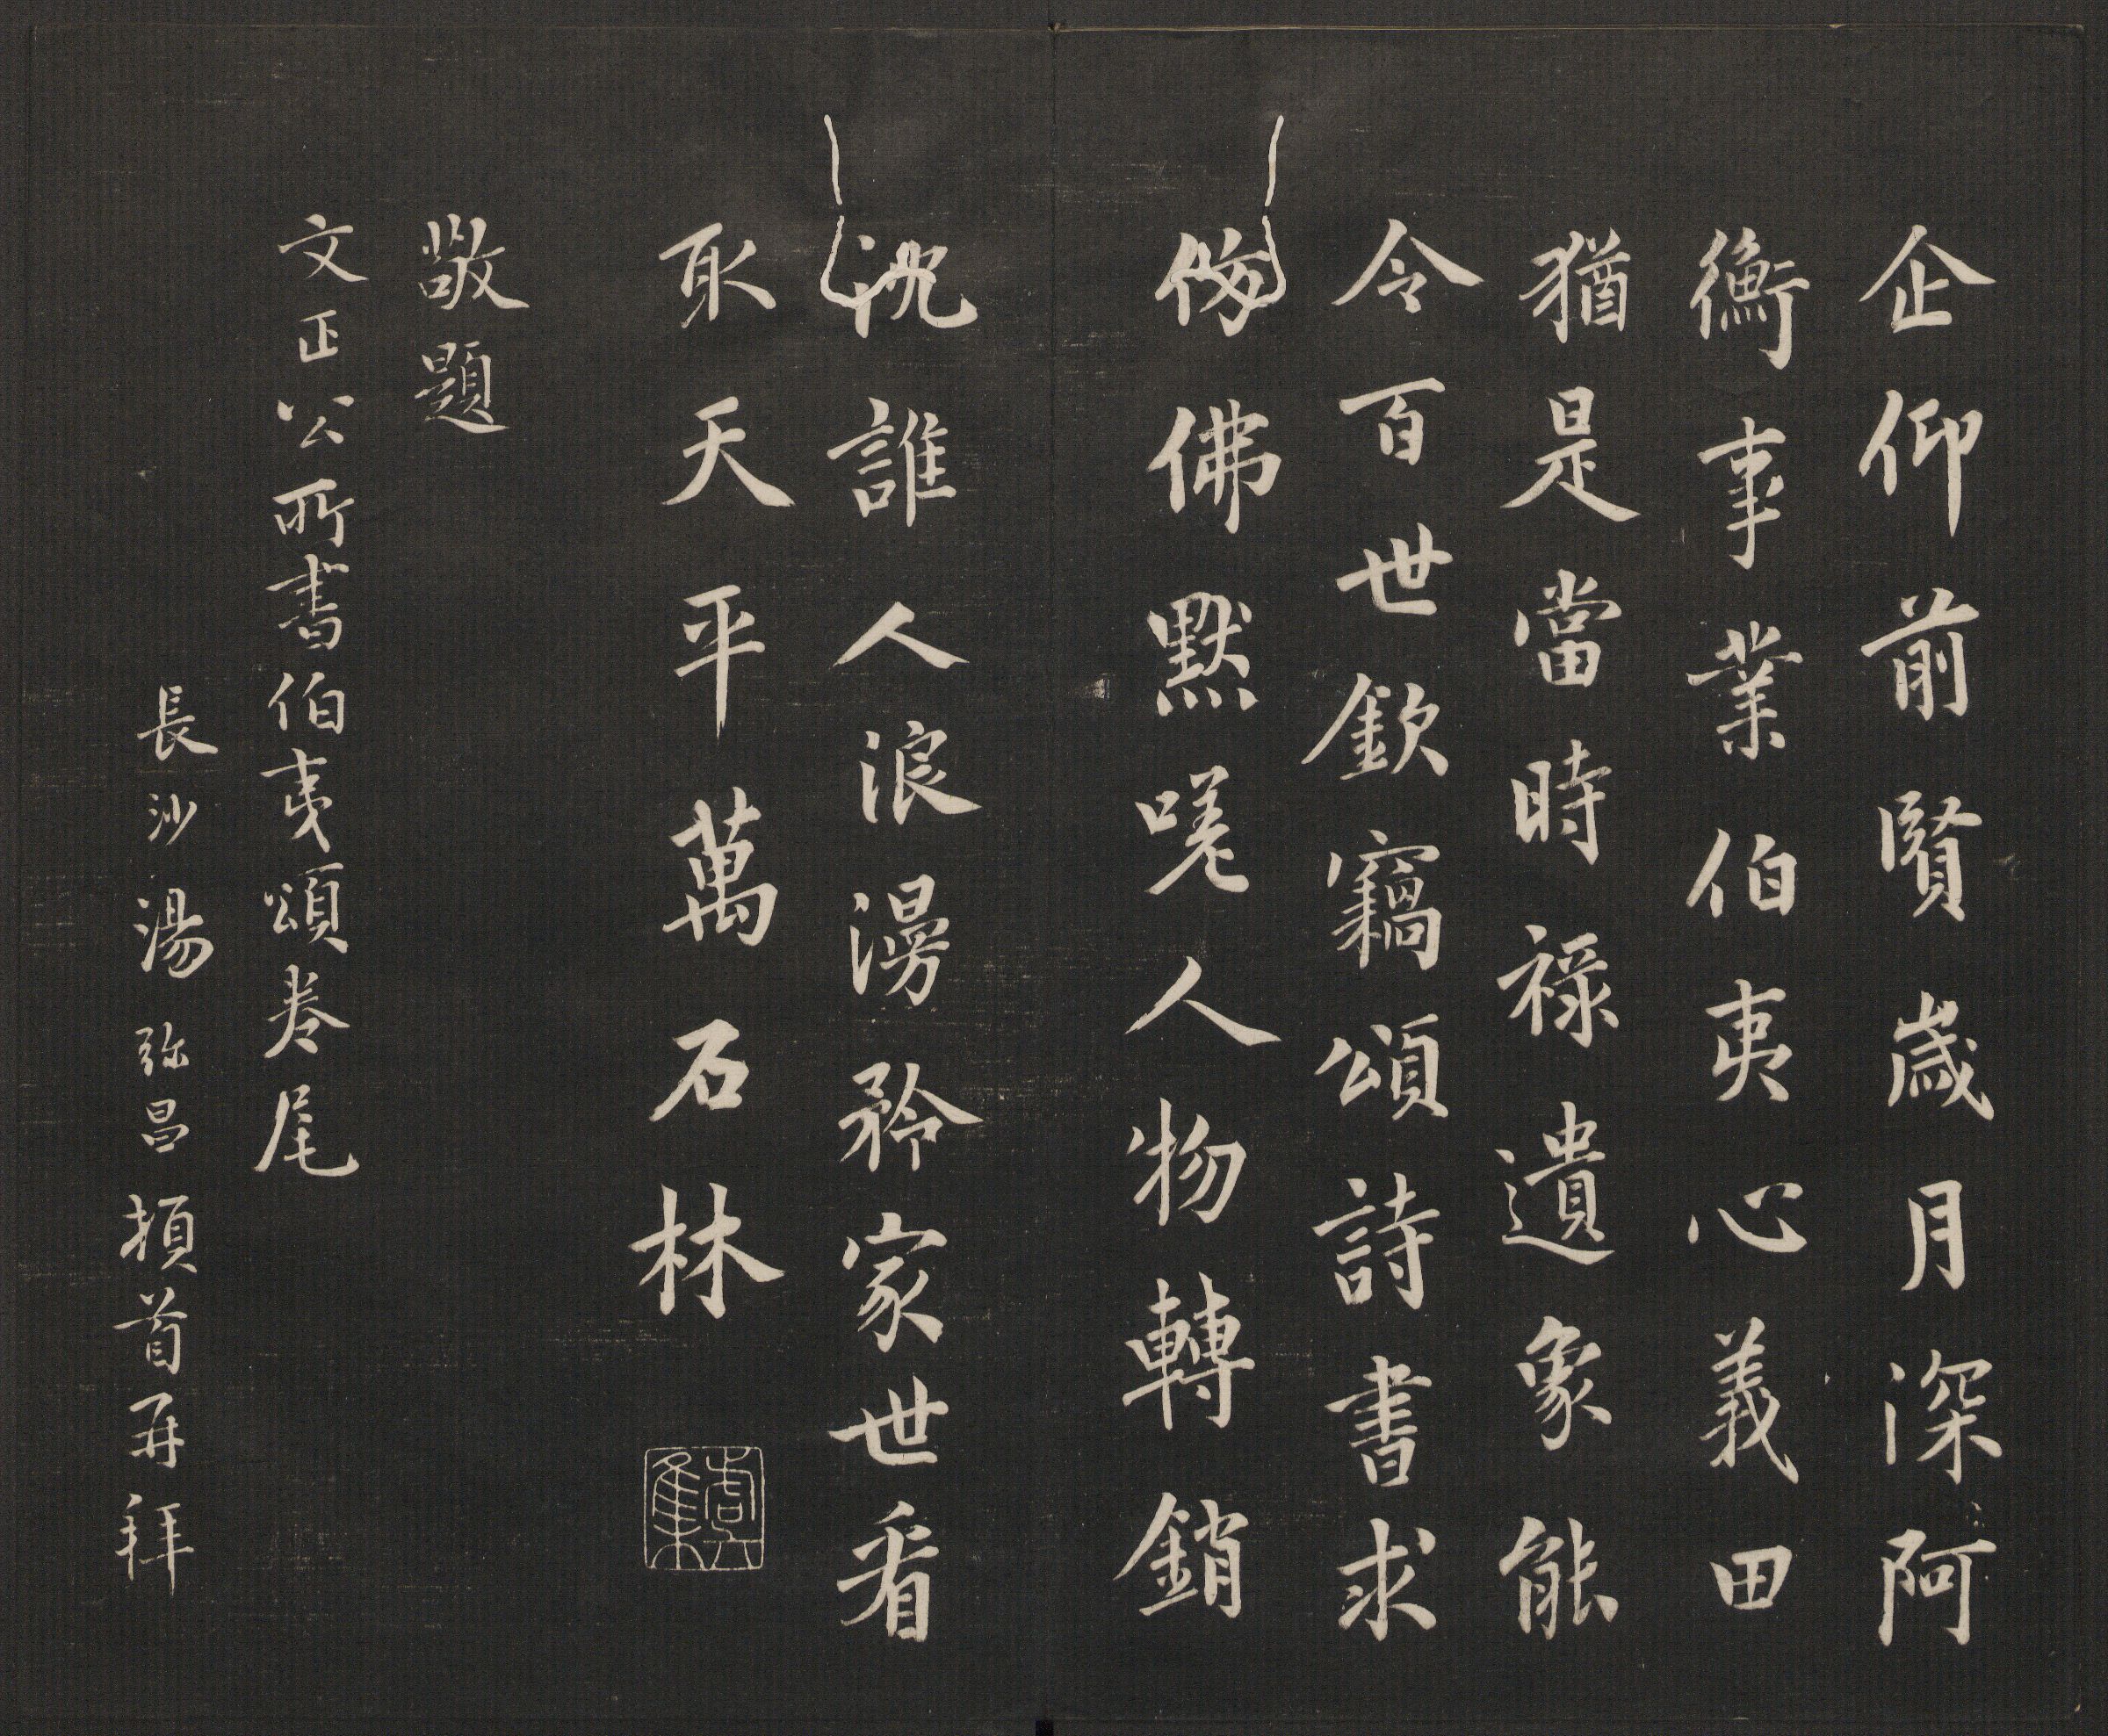 企仰前賢歲月深阿
衡事業伯夷心義田
猶是當時祿遺象能
令百世欽竊頌詩書求
仿佛默嗟人物轉銷
沈誰人浪漫矜家世看
取天平萬石林
虞集
敬題
文正公所書伯夷頌卷尾
長沙湯弥昌頓首再拜